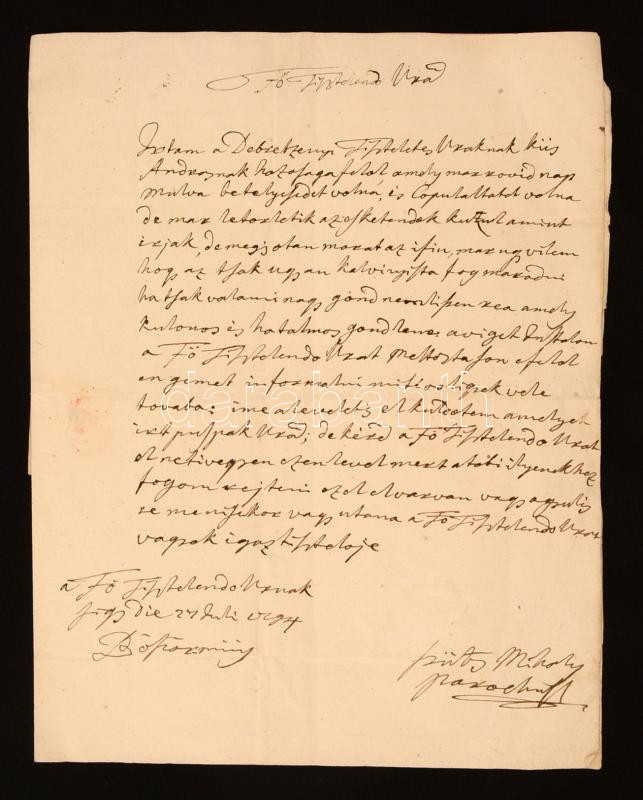 Fő Tisztelendő Urad
Irtam a Debretzenyi Tiszteletes Uraknak kiis
Andrasnak hazosaga felöl amely mar rovid nap
mulva betelyesedet volna, és Copulaltatot volna
de mar letorletik az esketendek kuzul amint
irjak, de megis otan marat az ifiu, mar ugy vilem
hog az tsak ugyan kalvinyista fog maradni
ha tsak valami nagy gond nem lişen rea amely
kulonos és hatalmos gond lenne a viget
a Fő Tisztelendo Urat Meltostason efelöl
engemet informalni
tovaba: ime a levelet is el kuldotem amelyet
irt puspak Urad; de kéred a Fő Tisztelendo Urat
el ne tivegyen ezen level mert a töbi ilyenekhez
fogom rejteni ezel elvarvan vagy
se menisekor vagy utana a Fő Tisztelendo Urat
vagyok igaz tisztelöje
a Fő Tisztelendo Urnak
die 27 Juli 1794
Böszörmüny
Mihaly
parochus
darabanth